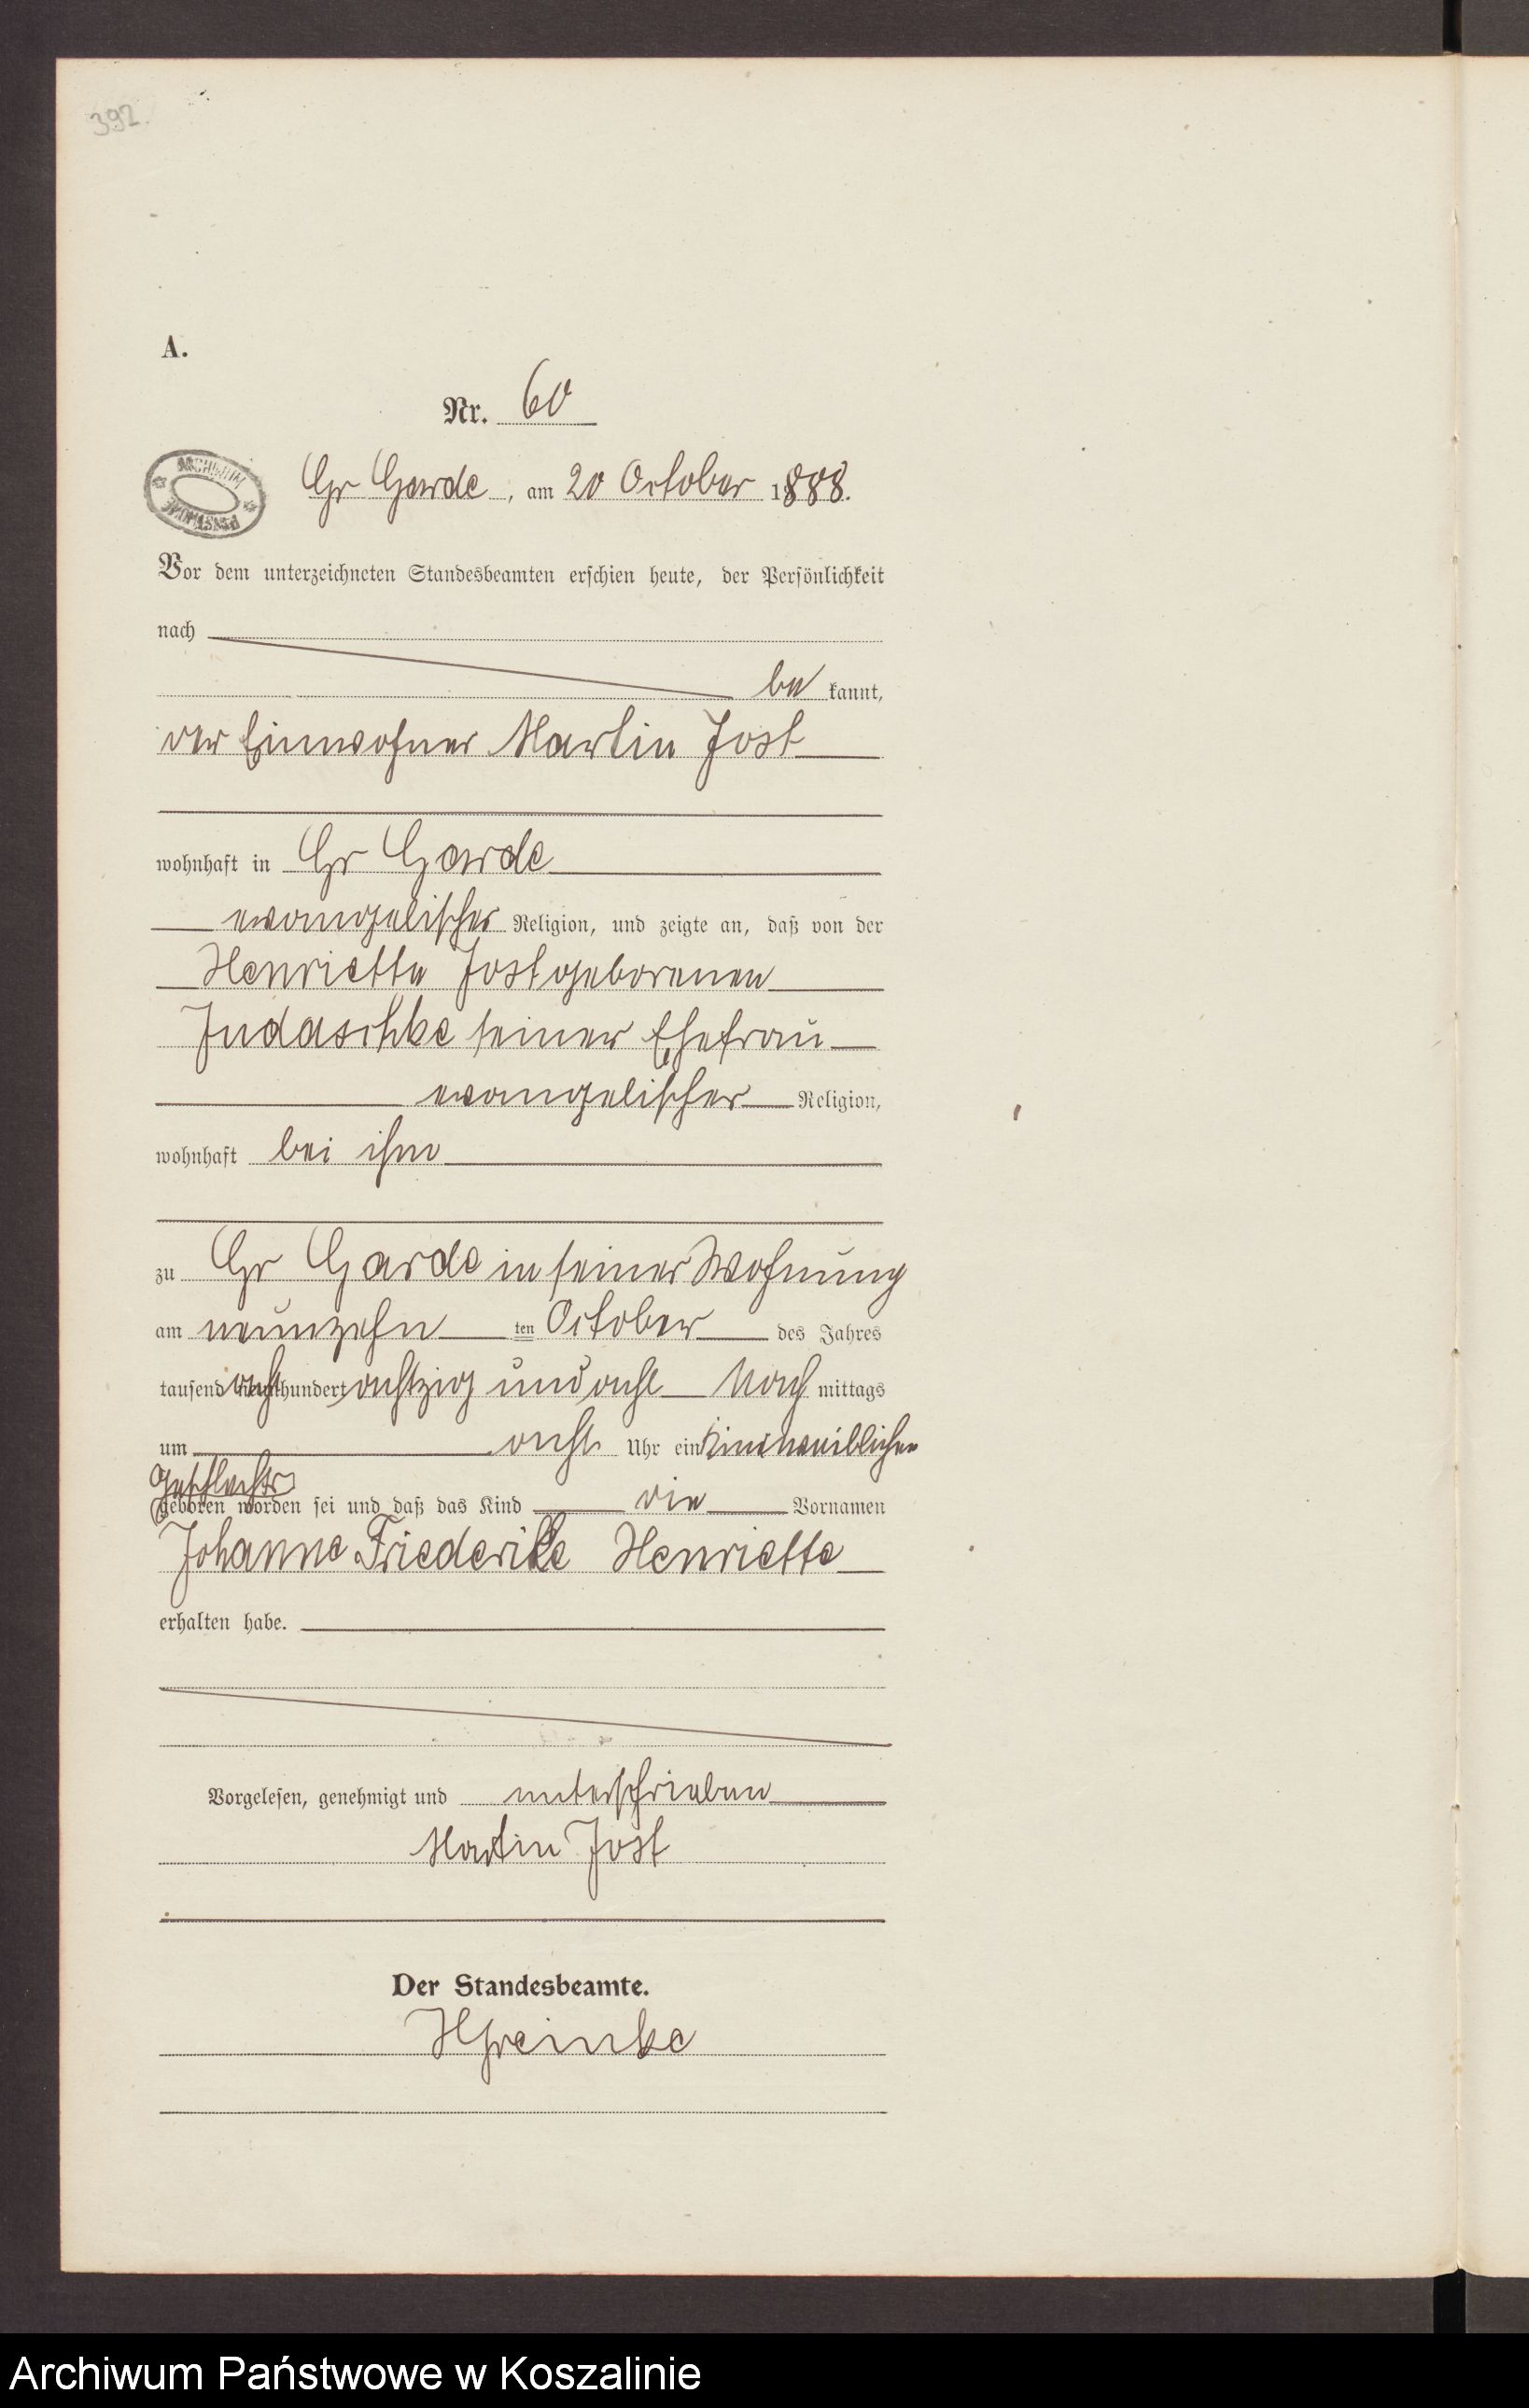 392.
A.
Nr. 60
ARCHIWUM PAŃSTWOWE
Gr Garde, am 20 October 1888.
Vor dem unterzeichneten Standesbeamten erschien heute, der Persönlichkeit
nach
be kannt,
der Einwohner Martin Jost
wohnhaft in Gr Garde
evangelischer Religion, und zeigte an, daß von der
Henriette Jost geborenen
Judaschke seiner Ehefrau
evangelischer Religion,
wohnhaft bei ihm
zu Gr Garde in seiner Wohnung
am neunzehn ten October des Jahres
tausend acht hundert achtzig und acht Nach mittags
um acht Uhr ein Kind weiblichen
Geschlechts
geboren worden sei und daß das Kind die Vornamen
Johanne Friederike Henriette
erhalten habe.
Vorgelesen, genehmigt und unterschrieben
Martin Jost
Der Standesbeamte.
Archiwum Państwowe w Koszalinie